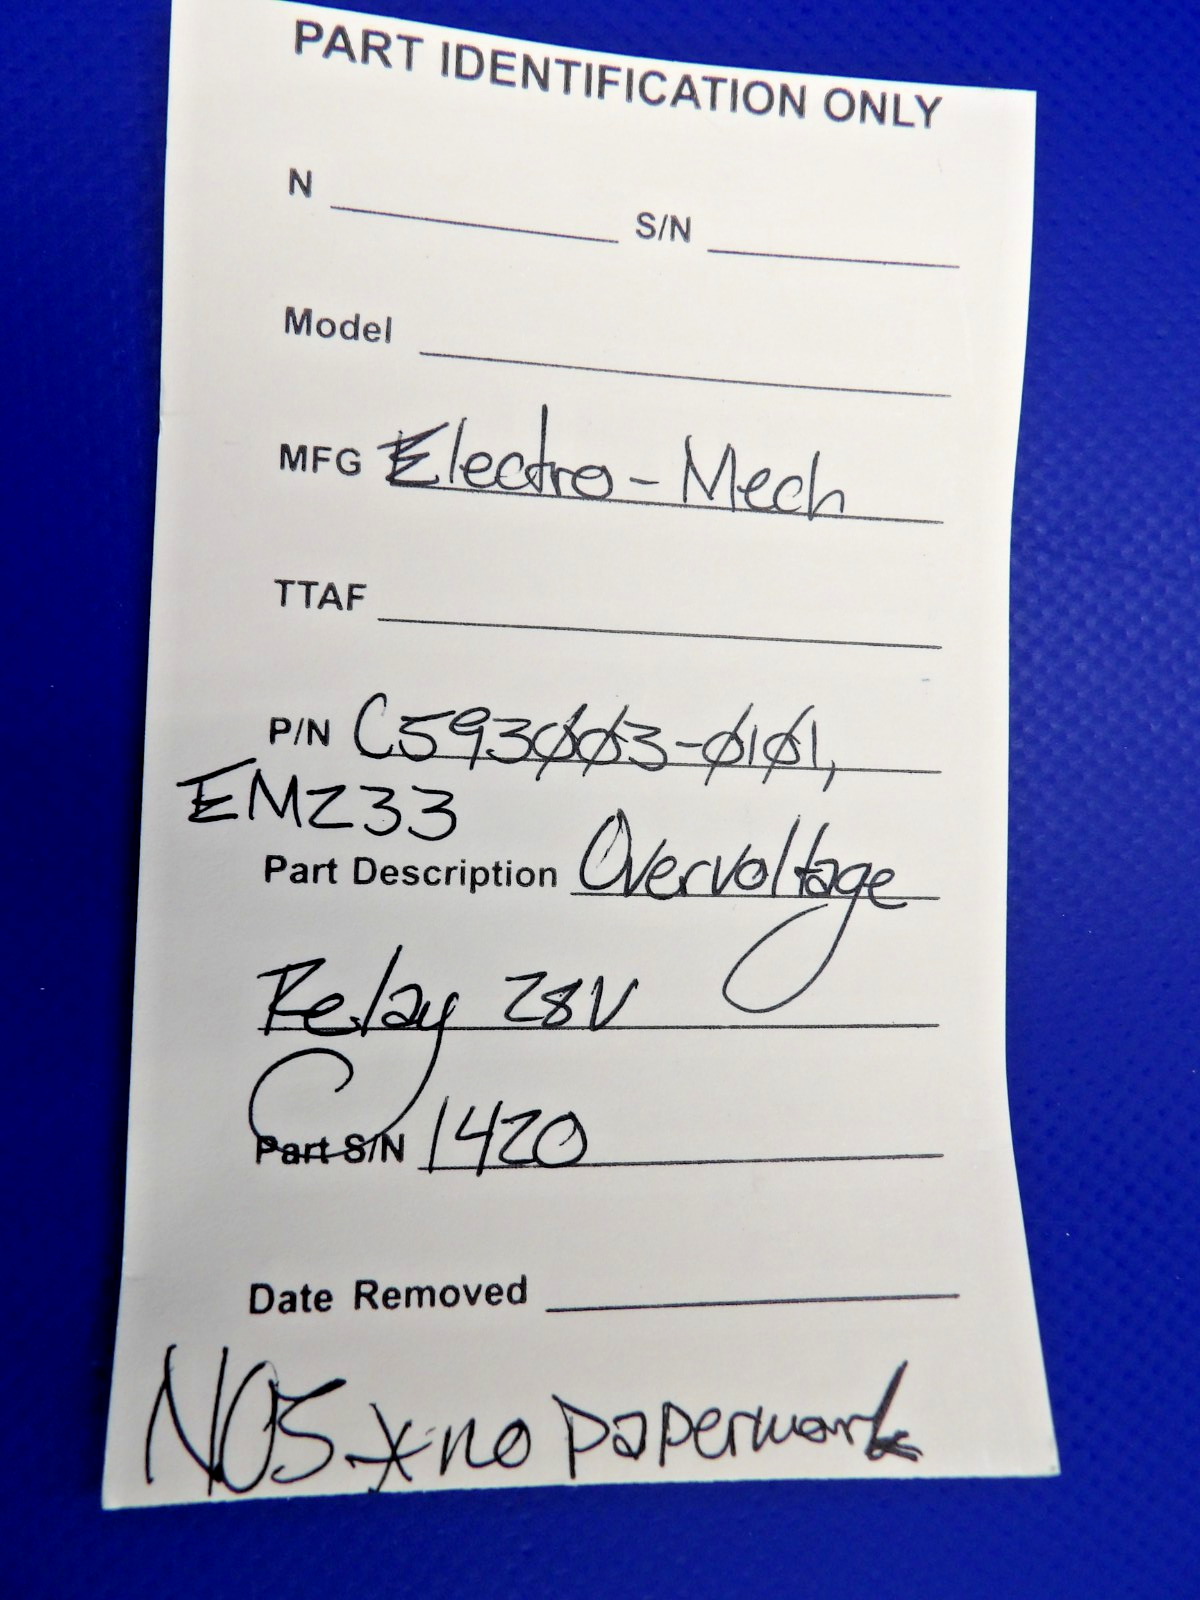 PART IDENTIFICATION ONLY
N S/N
Model
MFG Electro-Mech
TTAF
P/N C593003-0101,
EMZ33
Part Description Overvoltage
Relay 28V
Part S/N 1420
Date Removed
NOS * no paperwork